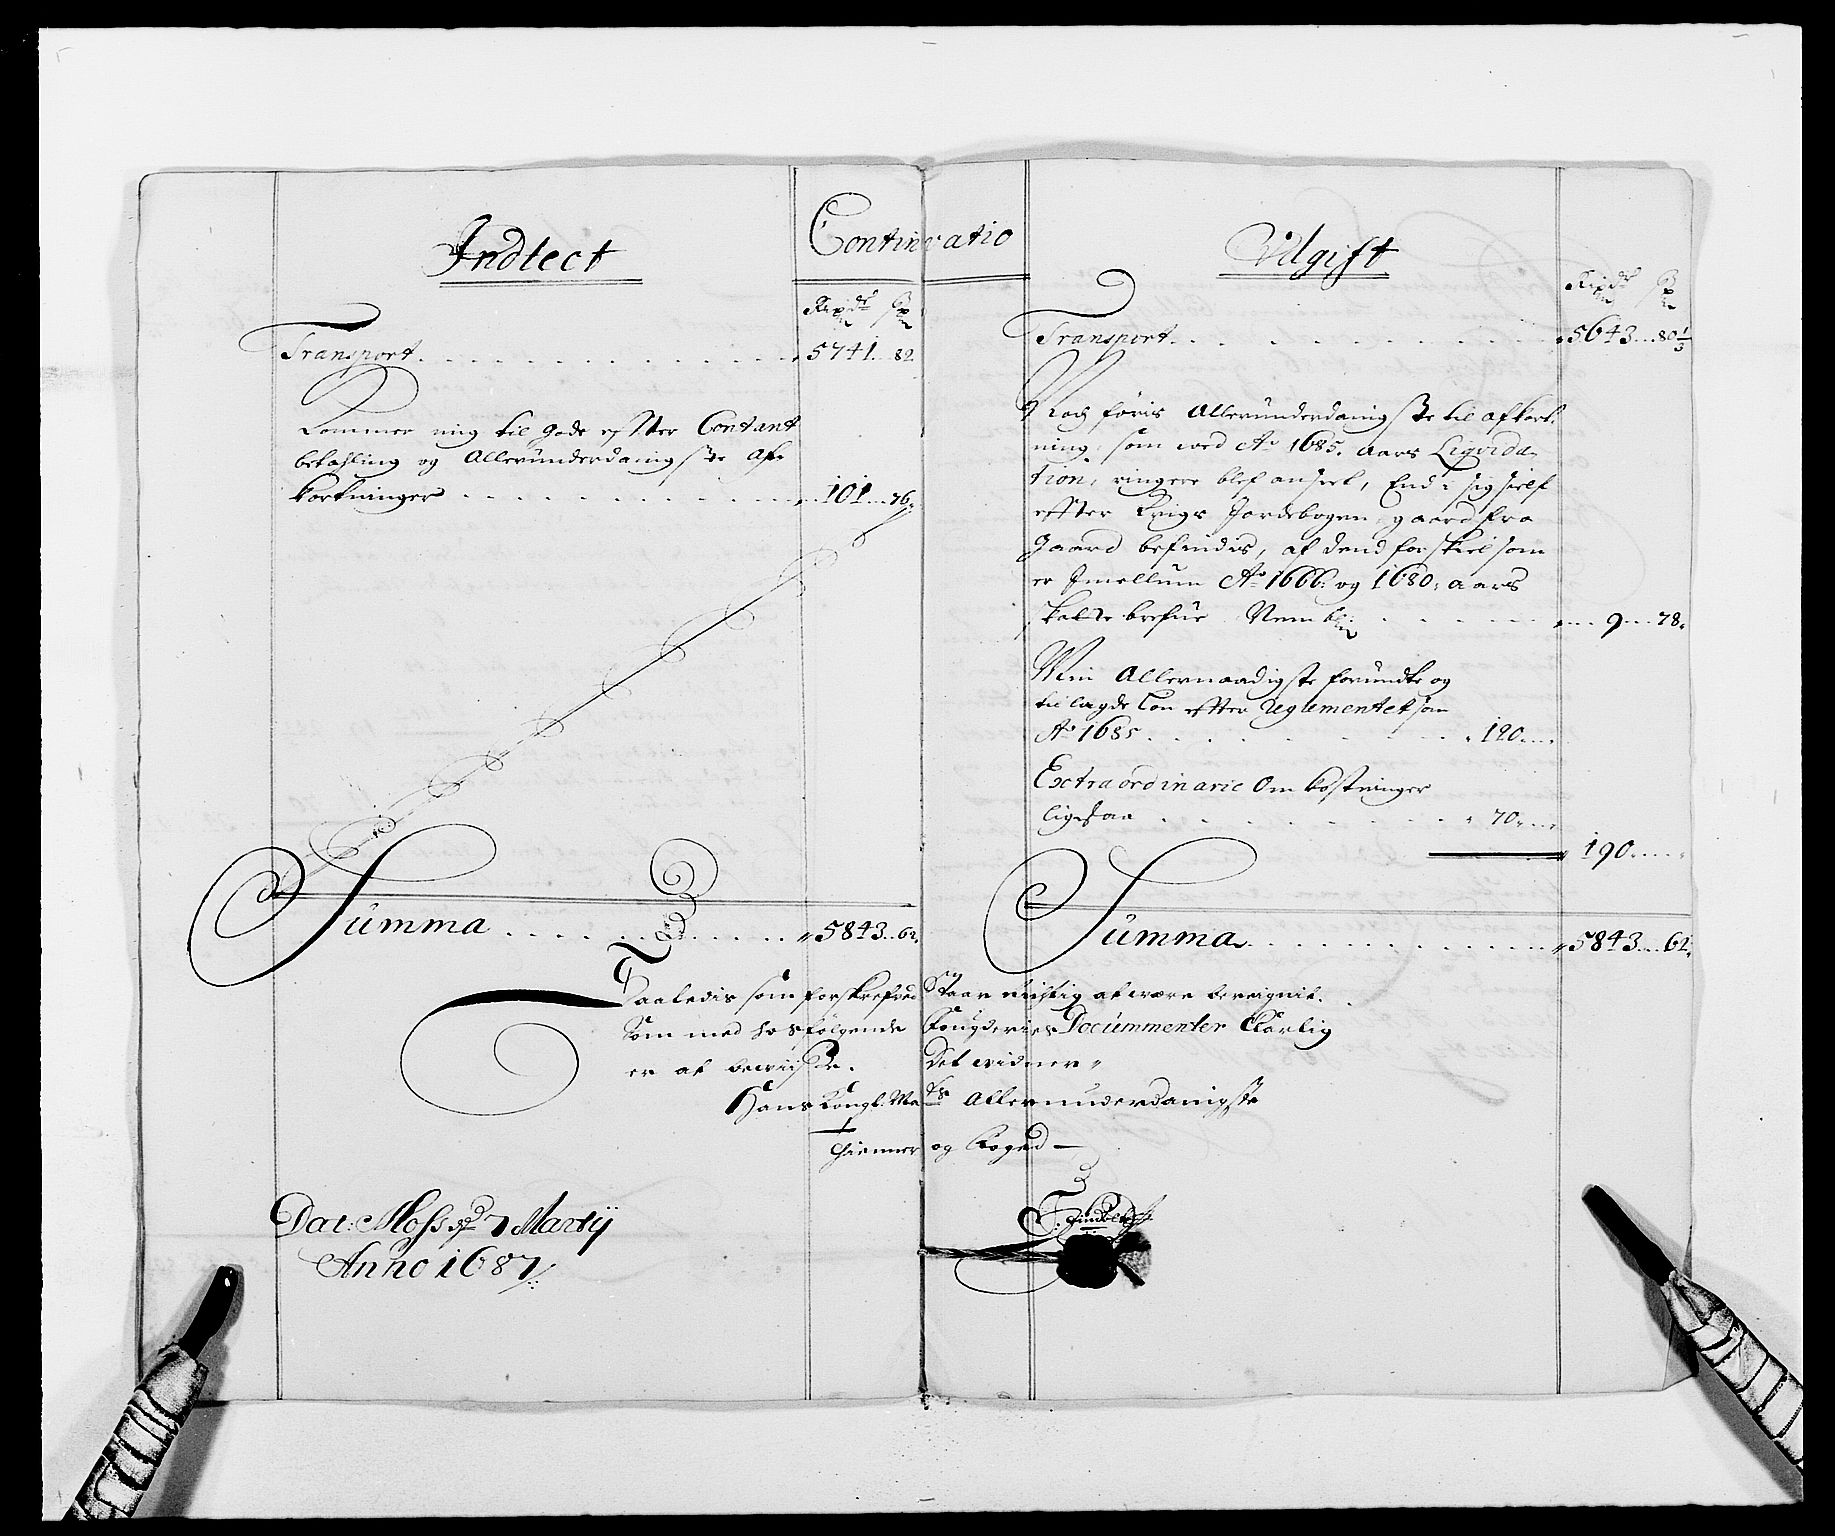 Indtect
Continvatio
Rixdr
Transport . . . 5741 . . 82.
Kommer mig til gode effter Contant
betahling og Allerunderdanigste Af-
kortninger . . . 101 . . 76.
Summa . . . 5843 . . 62.
Udgift
Rixdr
Transport . . . 5643 . . 80 1/3
Noch føris Allerunderdanigste til afkort-
ning, som ved Ao 1685. aars Liqvida-
tion, ringere blef anseet, End i sig sielf
effter Krigs Jordebogen gaard fra
gaard befindis, af dend forskiel som
er Imellum Ao 1666. og 1680. aars
skatte brefue Nembl. . . . 9 . . 78.
Min Allernaadigste forundte og
tillagde Løn effter Reglementet som
Ao 1685 . . . 120
Extraordinarie Omkostninger
ligesaa . . . 70
190
Summa . . . 5843 . . 62.
Saaledis som forskrefved Staar rigtig at være beregnit.
Som med hosfølgende Fougderies Documenter Klarlig
er at beviise. Det vidner
Hans Kongl. Mayts Allerunderdanigste
thienner og Foged
Dat: Moss d 7 Martij
Anno 1687